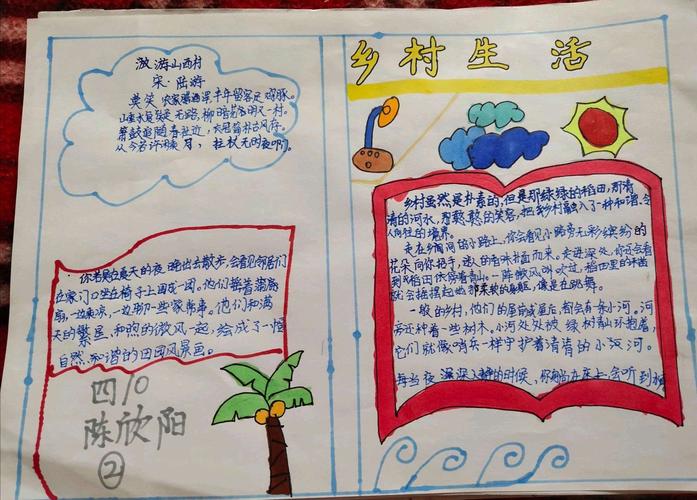 游山西村
宋·陆游
莫笑农家腊酒浑丰年留客足鸡豚。
山重水复疑无路,柳暗花明又一村。
箫鼓追随春社近,衣冠简朴古风存。
从今若许闲乘月,拄杖无时夜叩门。
你若是在夏天的夜晚出去散步,会看见邻居们
在家门口坐在椅子上围成一团。他们摇着蒲扇
扇,一边乘凉,一边聊一些家常事。他们和满
天的繁星,和煦的微风一起,绘成了一幅
自然、和谐的田园风景画。
四10
陈欣阳
②
乡村生活
乡村虽然是朴素的,但是那绿绿的稻田,清
清的河水,憨憨的笑容,把乡村融入了一种和谐,令
人向往的境界。
走在乡间的小路上,你会看见小路旁五彩缤纷的
花朵向你招手,迷人的香味扑面而来。走进深处,你还会看
到稻田依偎着青山。一阵微风吹过,稻田里的
就会摇摆起她那柔软的身躯,像是在跳舞。
一般的乡村,他们的屋前或屋后,都会有一条小河。河
旁还种着一些树木。小河处处被绿树青山环抱着,
它们就像哨兵一样守护着清清的小河。
每当夜深人静的时候,你躺在床上,会听到